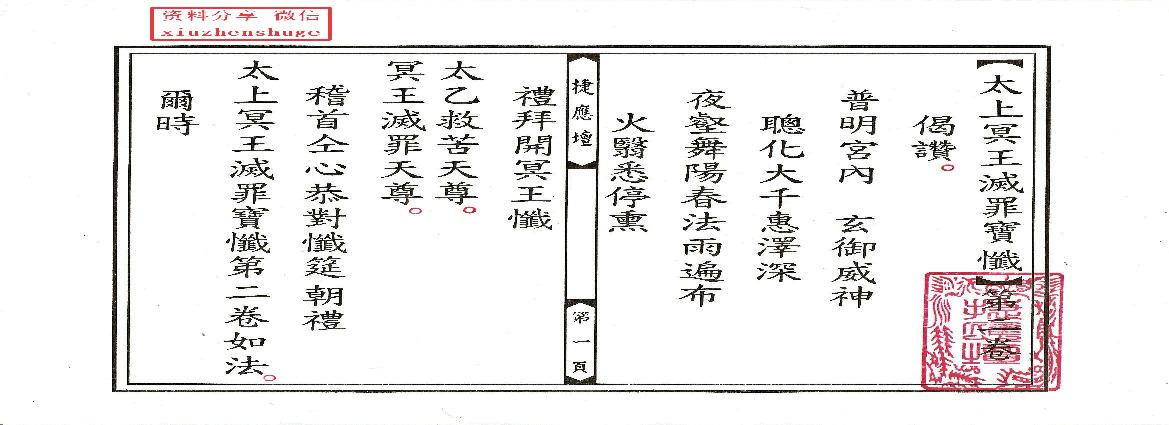 资料分享 微信
xiuzhenshuge
【太上冥王滅罪寶懺】第二卷
偈讚。
普明宮內 玄御威神
聰化大千惠澤深
夜壑舞陽春法雨遍布
火翳悉停熏
捷應壇
第一頁
禮拜開冥王懺
太乙救苦天尊。
冥王滅罪天尊。
稽首仝心恭對懺筵朝禮
太上冥王滅罪寶懺第二卷如法。
爾時